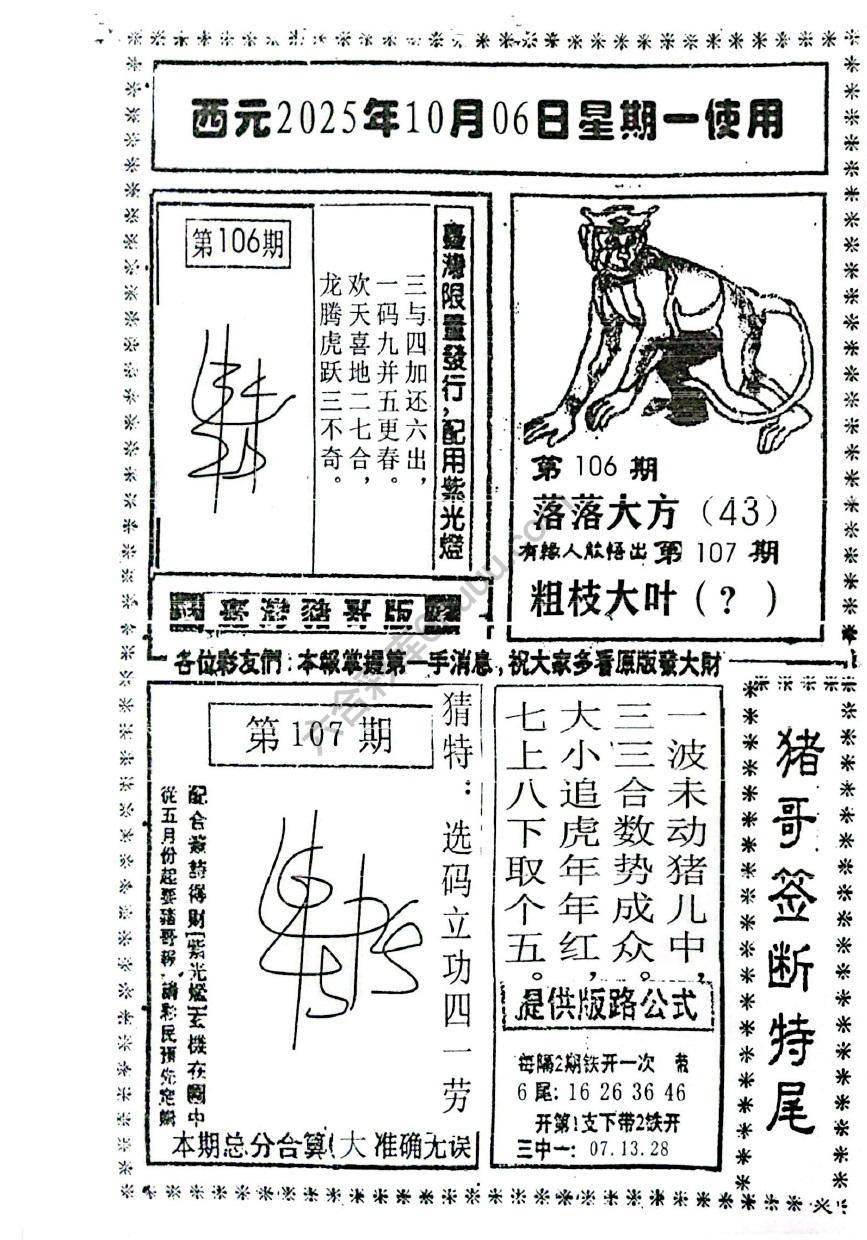 西元2025年10月06日星期一使用
第106期
臺灣限量發行,配用紫光燈
三与四加还六出,
一码九并五更春。
欢天喜地二七合,
龙腾虎跃三不奇。
第106期
落落大方(43)
有緣人能悟出第107期
粗枝大叶(?)
臺灣豬哥版
各位彩友們:本報掌握第一手消息,祝大家多看原版發大財
第107期
猜特:选码立功四一劳
從五月份起要豬哥報,請彩民預先定購
本期总分合算(大准确无误
一波未动猪儿中,
三三合数势成众。
大小追虎年年红,
七上八下取个五。
提供版路公式
每隔2期铁开一次
6尾:16 26 36 46
开第1支下带2铁开
三中一:07.13.28
猪哥签断特尾